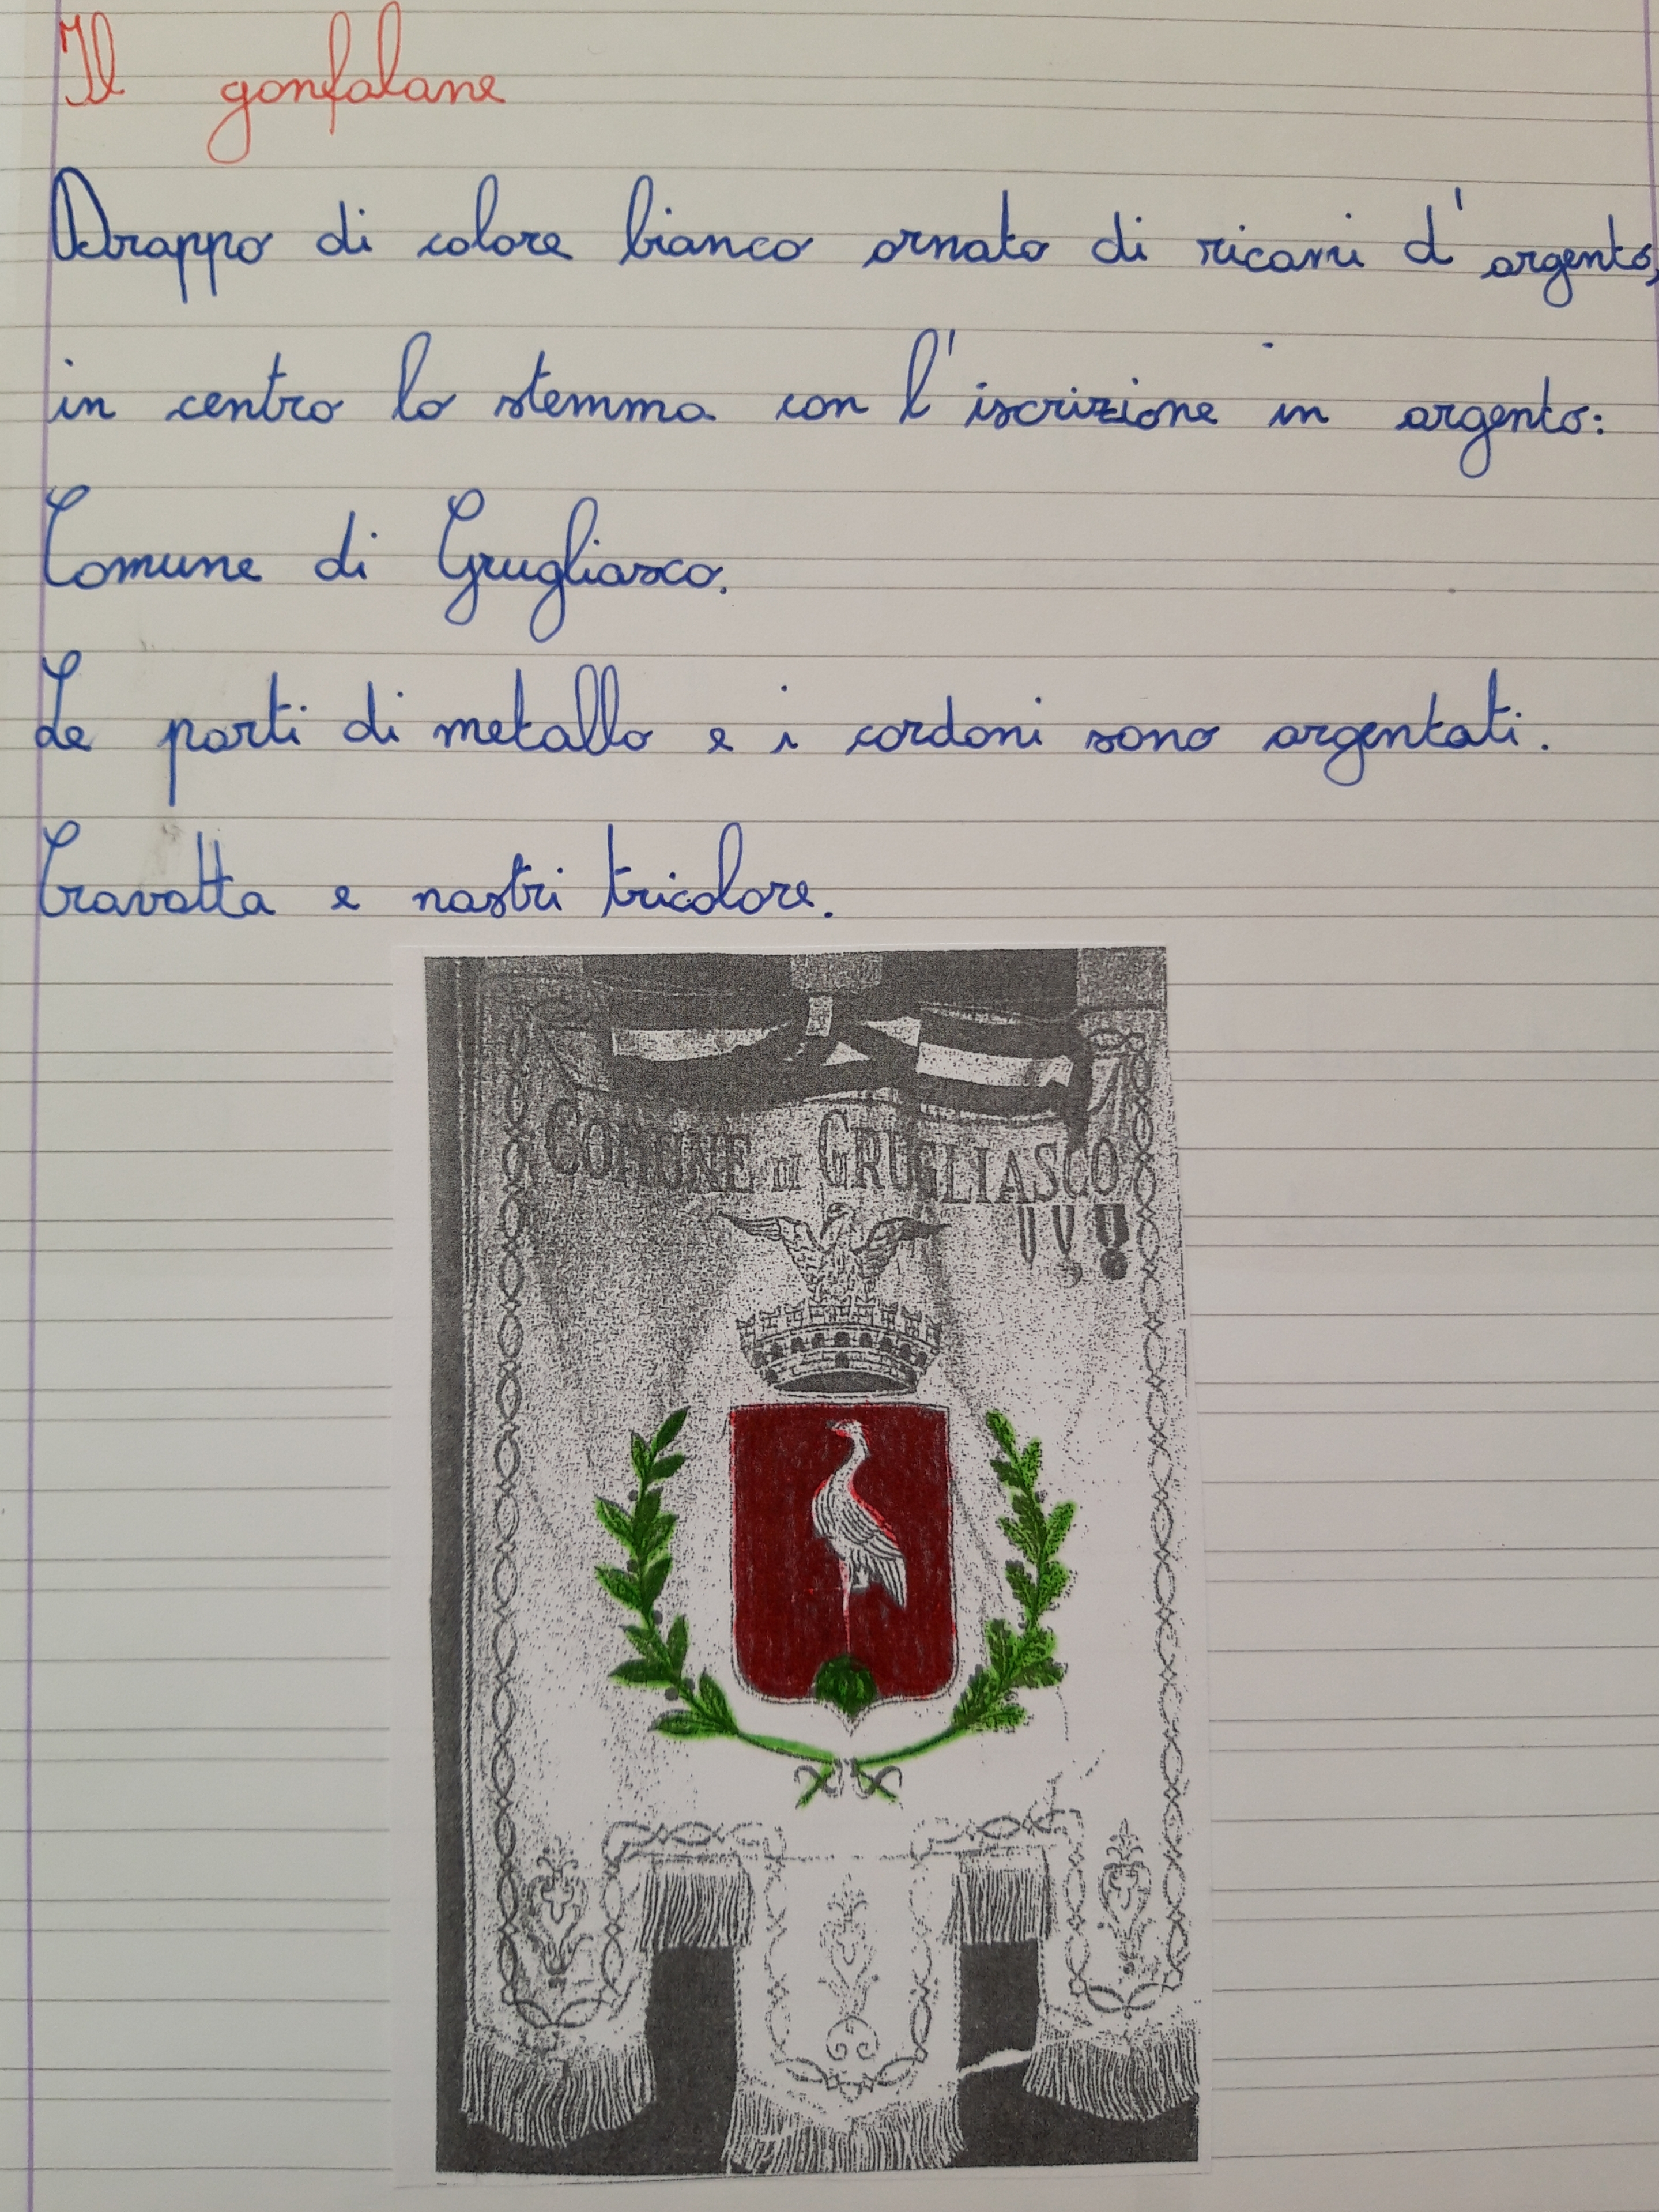 Il gonfalane
Drappo di colore bianco ornato di ricami d'argento,
in centro lo stemma con l'iscrizione in argento:
Comune di Grugliasco.
Le parti di metallo e i cordoni sono argentati.
Cravatta e nastri tricolore.
COMUNE DI GRUGLIASCO